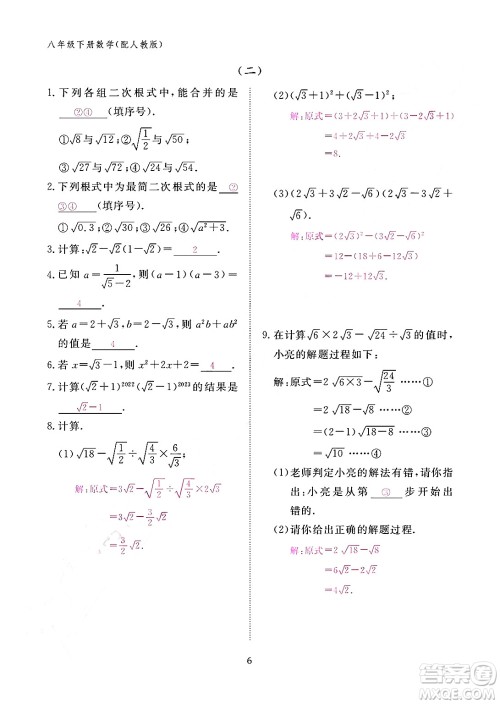 八年级下册数学(配人教版)
(二)
1. 下列各组二次根式中,能合并的是
②④ (填序号).
①√8与√12;②√2与√(1/2)与√50;
③√27与√72;④√54与√24.
2. 下列根式中为最简二次根式的有 ②
③④ (填序号).
①√0.3;②√7;③√15;④√(a²+3).
3. 计算:√2(√2-√2)= 2 .
4. 已知 a=1/(√5-2),则(a-1)(a-3)=
4 .
5. 若 a=2+√3,b=2-√3,则 a²+ab
的值是 4 .
6. 若 x=√3-1,则 x²+2x+2= 4 .
7. 计算(√2+1)²⁰²²(√2-1)²⁰²³的结果是
√2-1 .
8. 计算.
(1)√18-√(1/2)÷√(4/3)×6/√3;
解:原式=3√2-√(1/2)÷√(4/3)×2√3
=3√2-3/2√2
=3/2√2.
(2)(√3+1)²-2(√3+1)
解:原式=(3+2√3+1)-(2√3+2)
=4+2√3-2√3+4
=8.
(3)(√3)²-(3-√3)²
解:原式=(2√3)²-(3-√3)²
=12-(18-6√3)
=12-18+6√3
=-6+12√3.
9. 在计算√6×2√3-√24÷√3的值时,
小亮的解题过程如下:
解:原式=2√(6×3)-√(24/3) ……①
=2√18-√8 ……②
=(2-1)√(18-8) ……③
=√10 ……④
(1)老师判定小亮的解法有错,请你指
出:小亮是从第 ③ 步开始出
错的.
(2)请你给出正确的解题过程.
解:原式=2√18-√8
=6√2-2√2
=4√2.
6